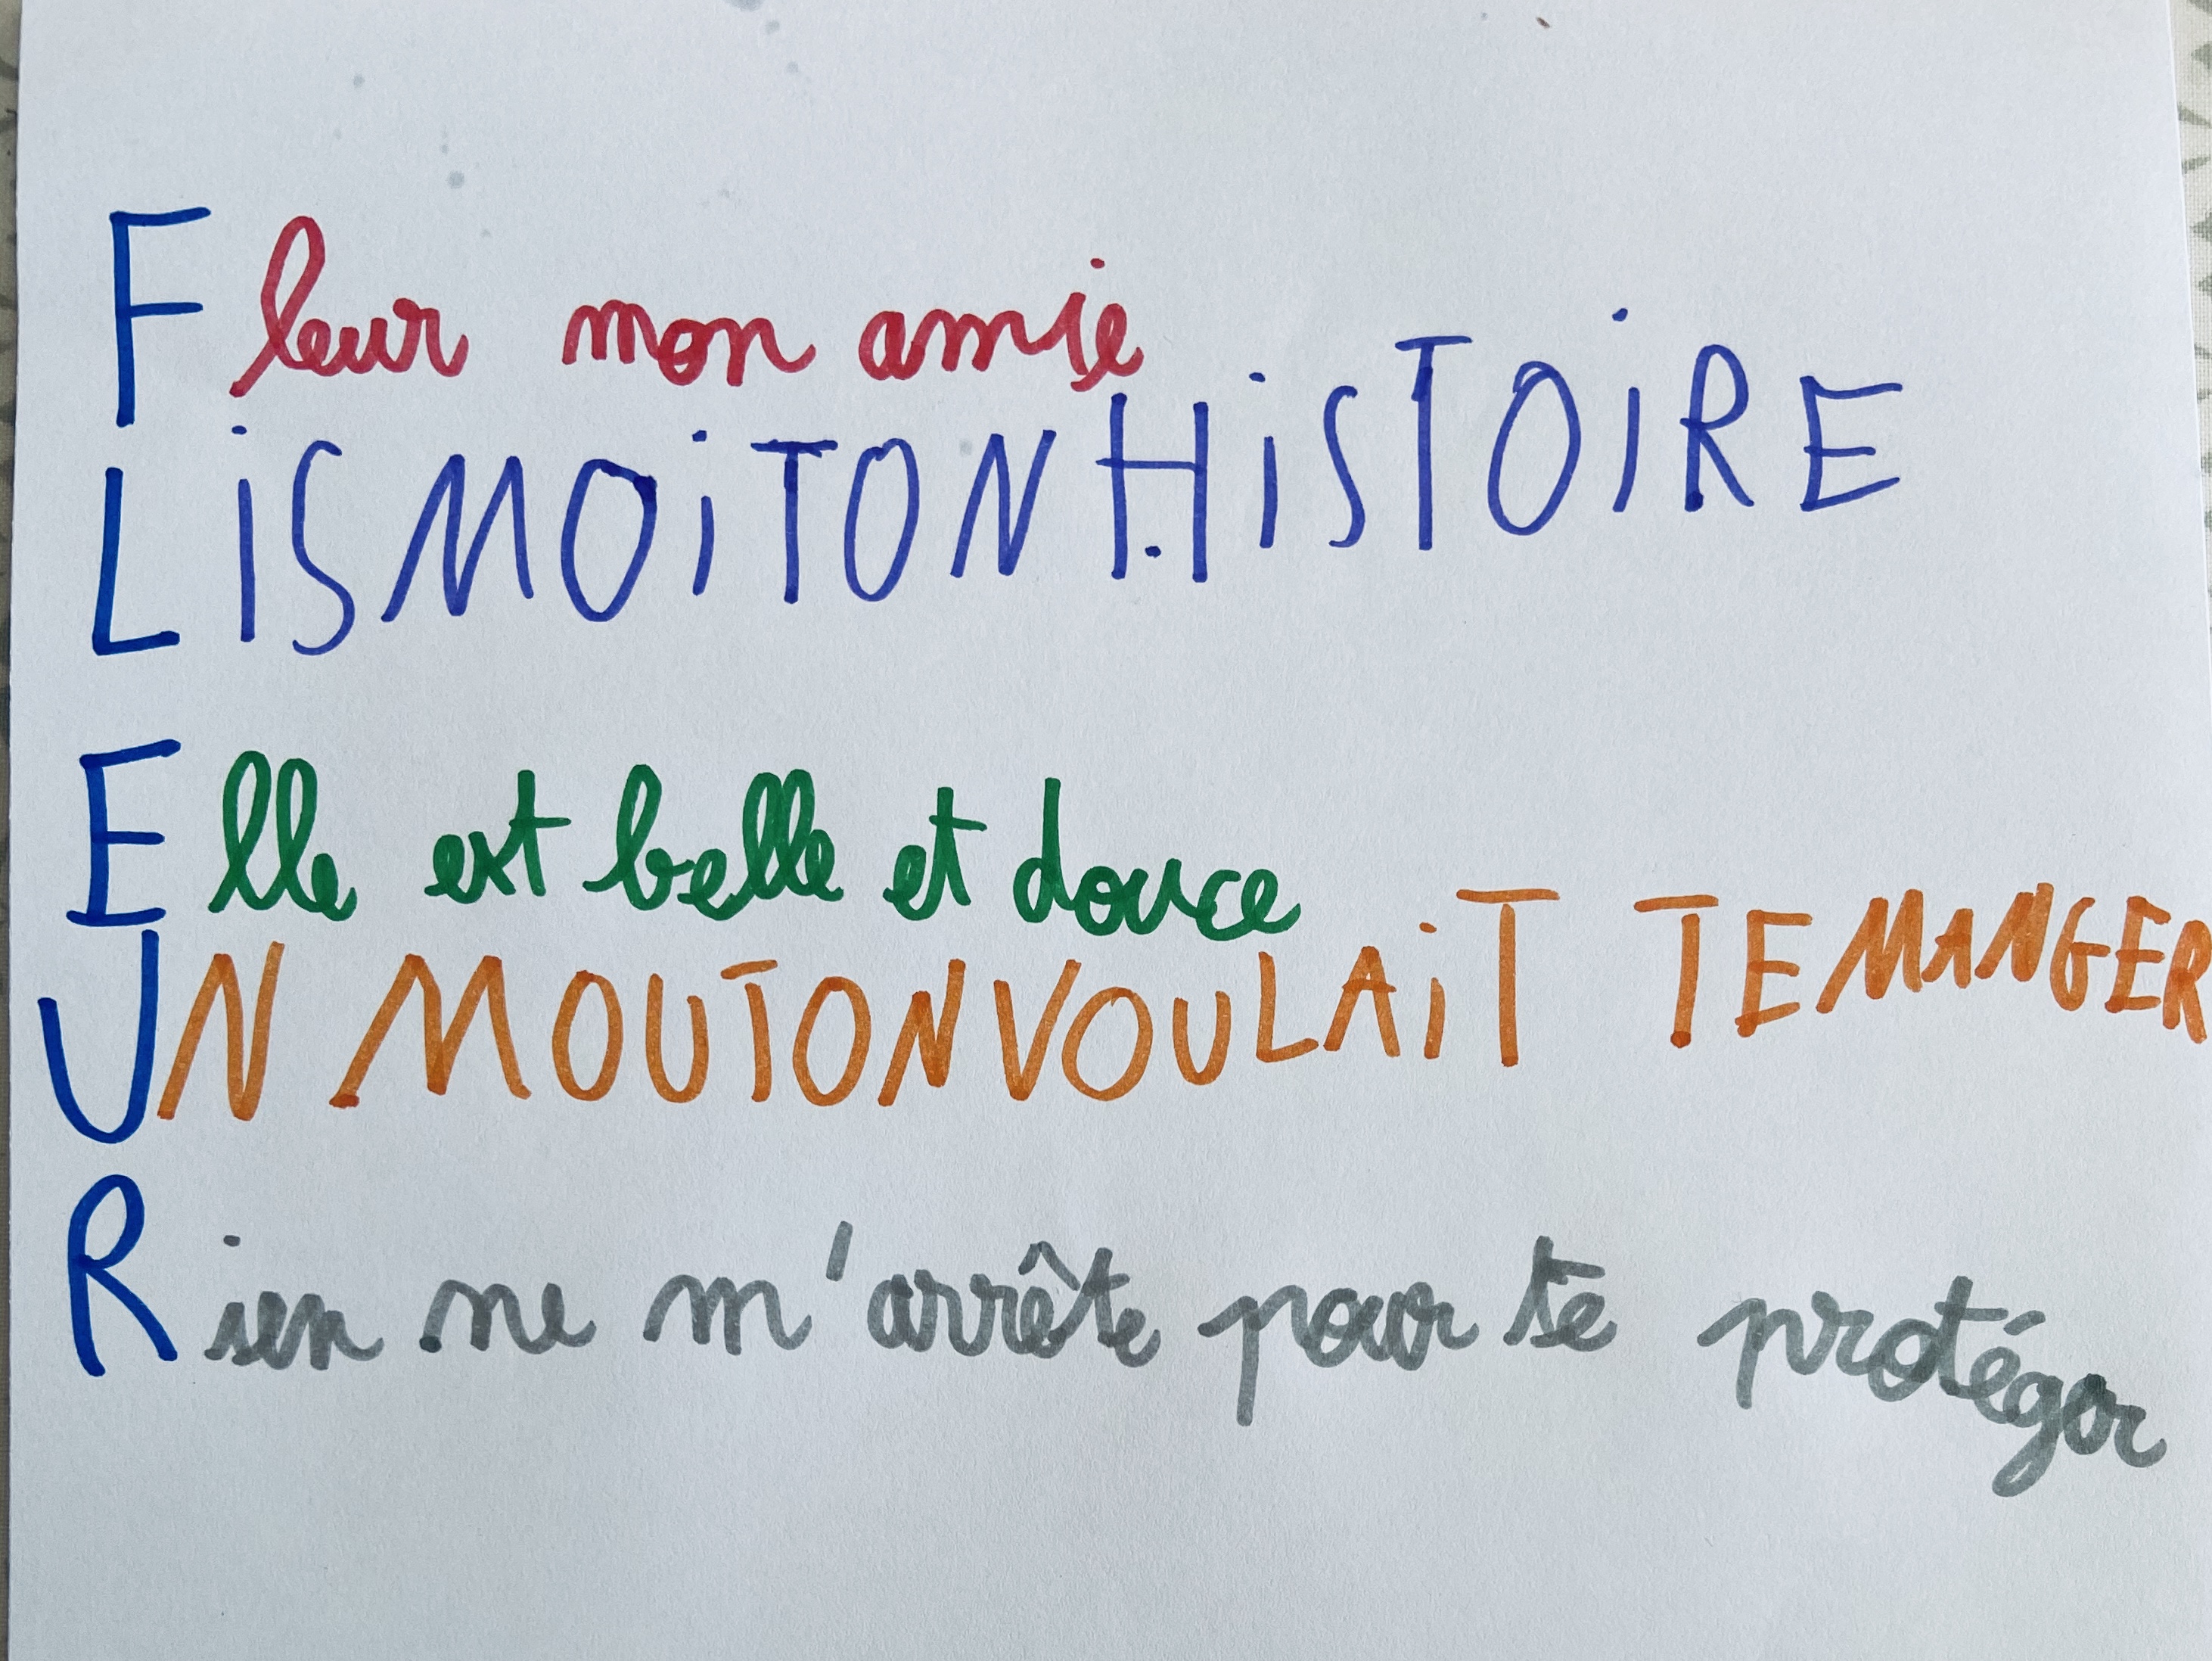 Fleur mon amie
LiS MOi TON HiSTOiRE
Elle est belle et douce
UN MOUTON VOULAiT TE MANGER
Rien ne m'arrête pour te protéger